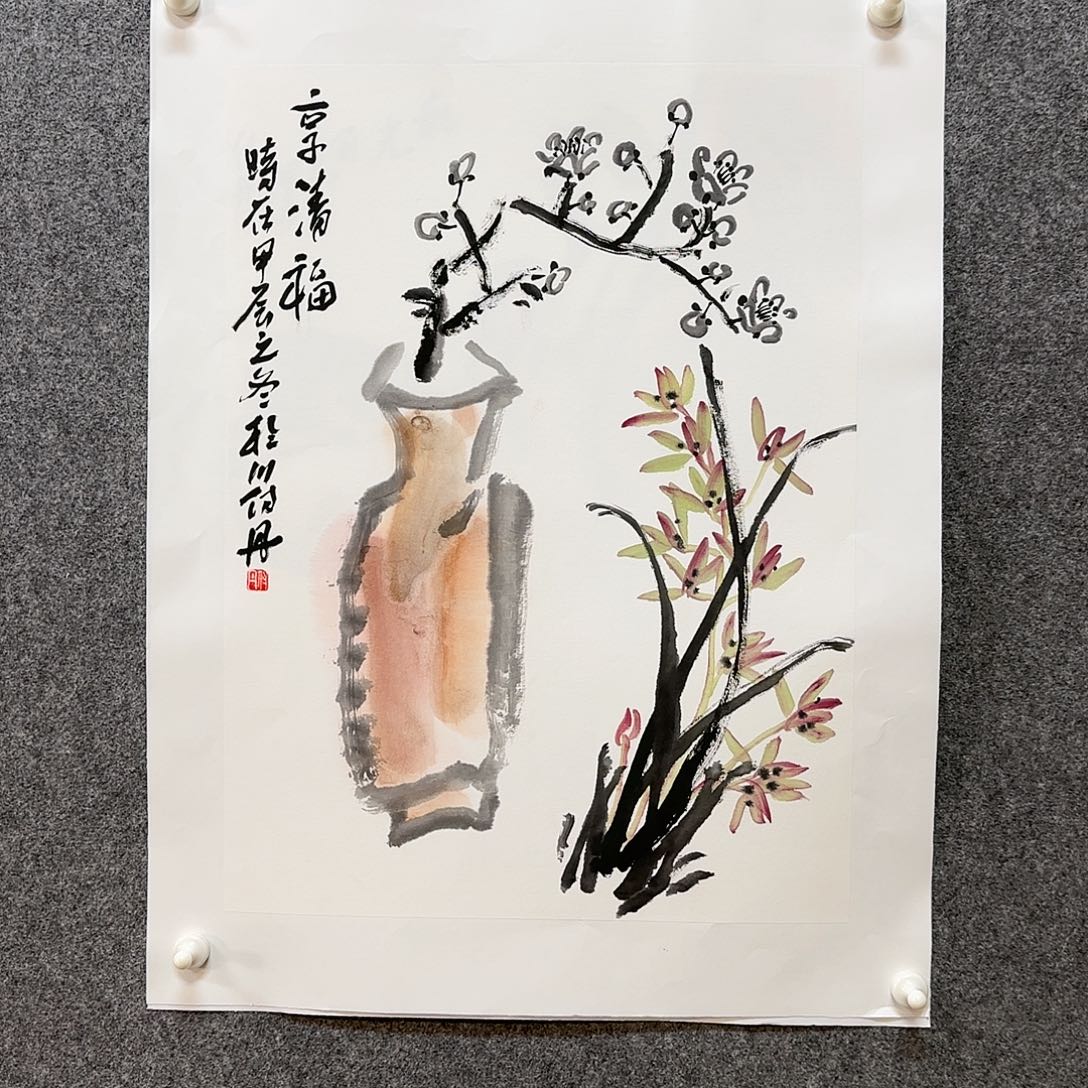 享清福
時在甲辰之冬程川付丹